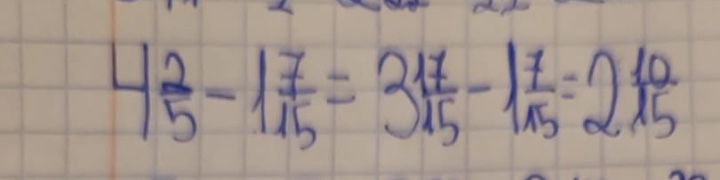 4 2/5 - 1 7/15 = 3 17/15 - 1 7/15 = 2 10/15